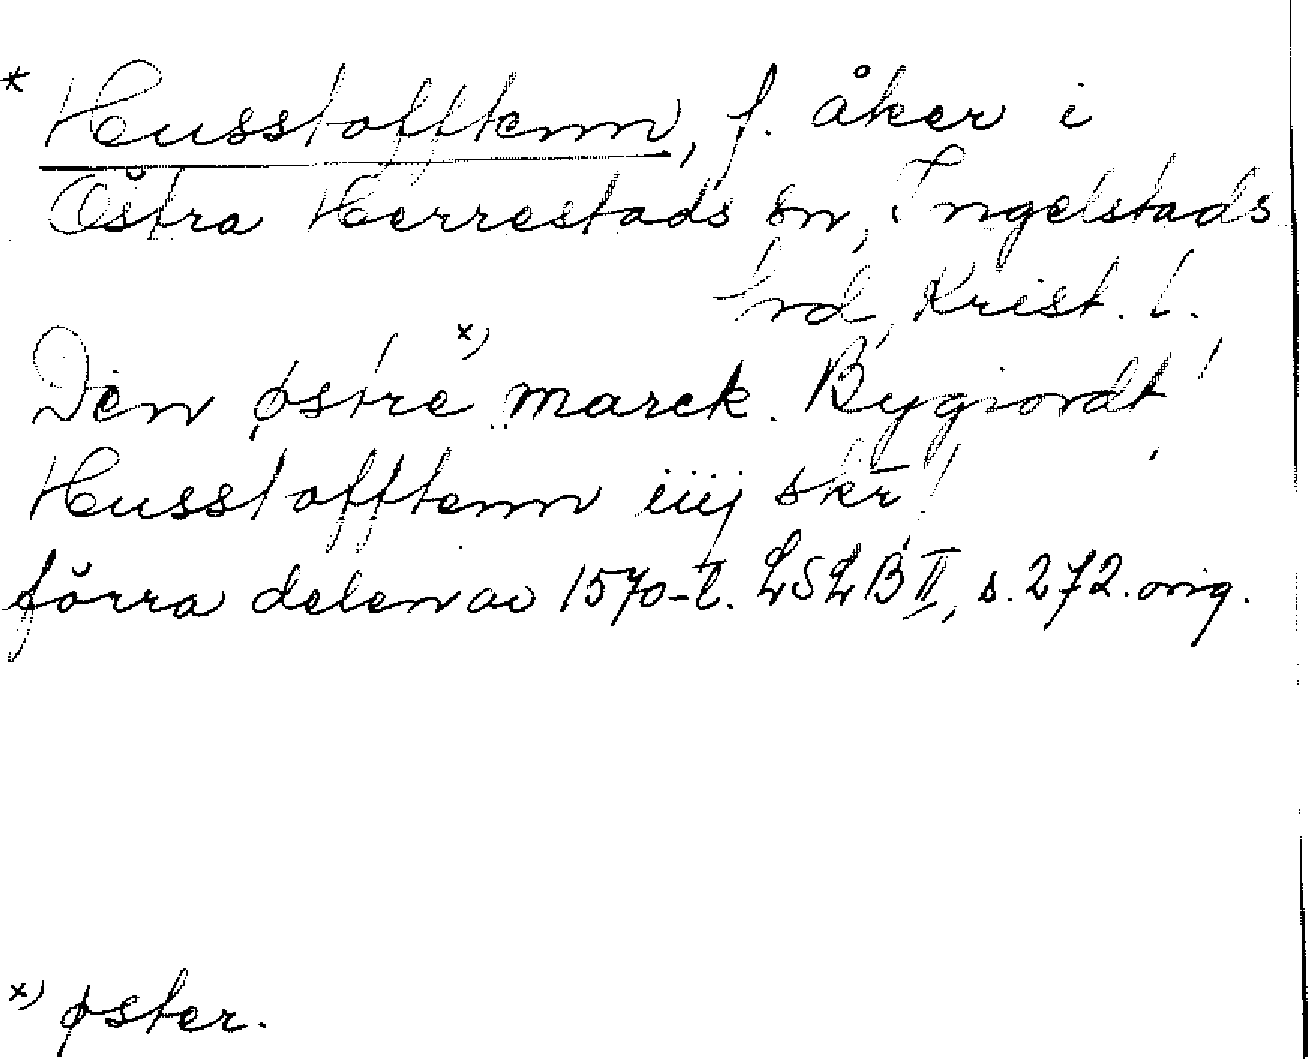 * Husstofftenn, f. åker i
Östra Herrestads sn, Ingelstads
hrd, Krist. l.
Den østre x) marck. Bygiordt
Husstofftenn iiij skr
förra delen av 1570-t. LSLB II, s. 272. orig.
x) øster.